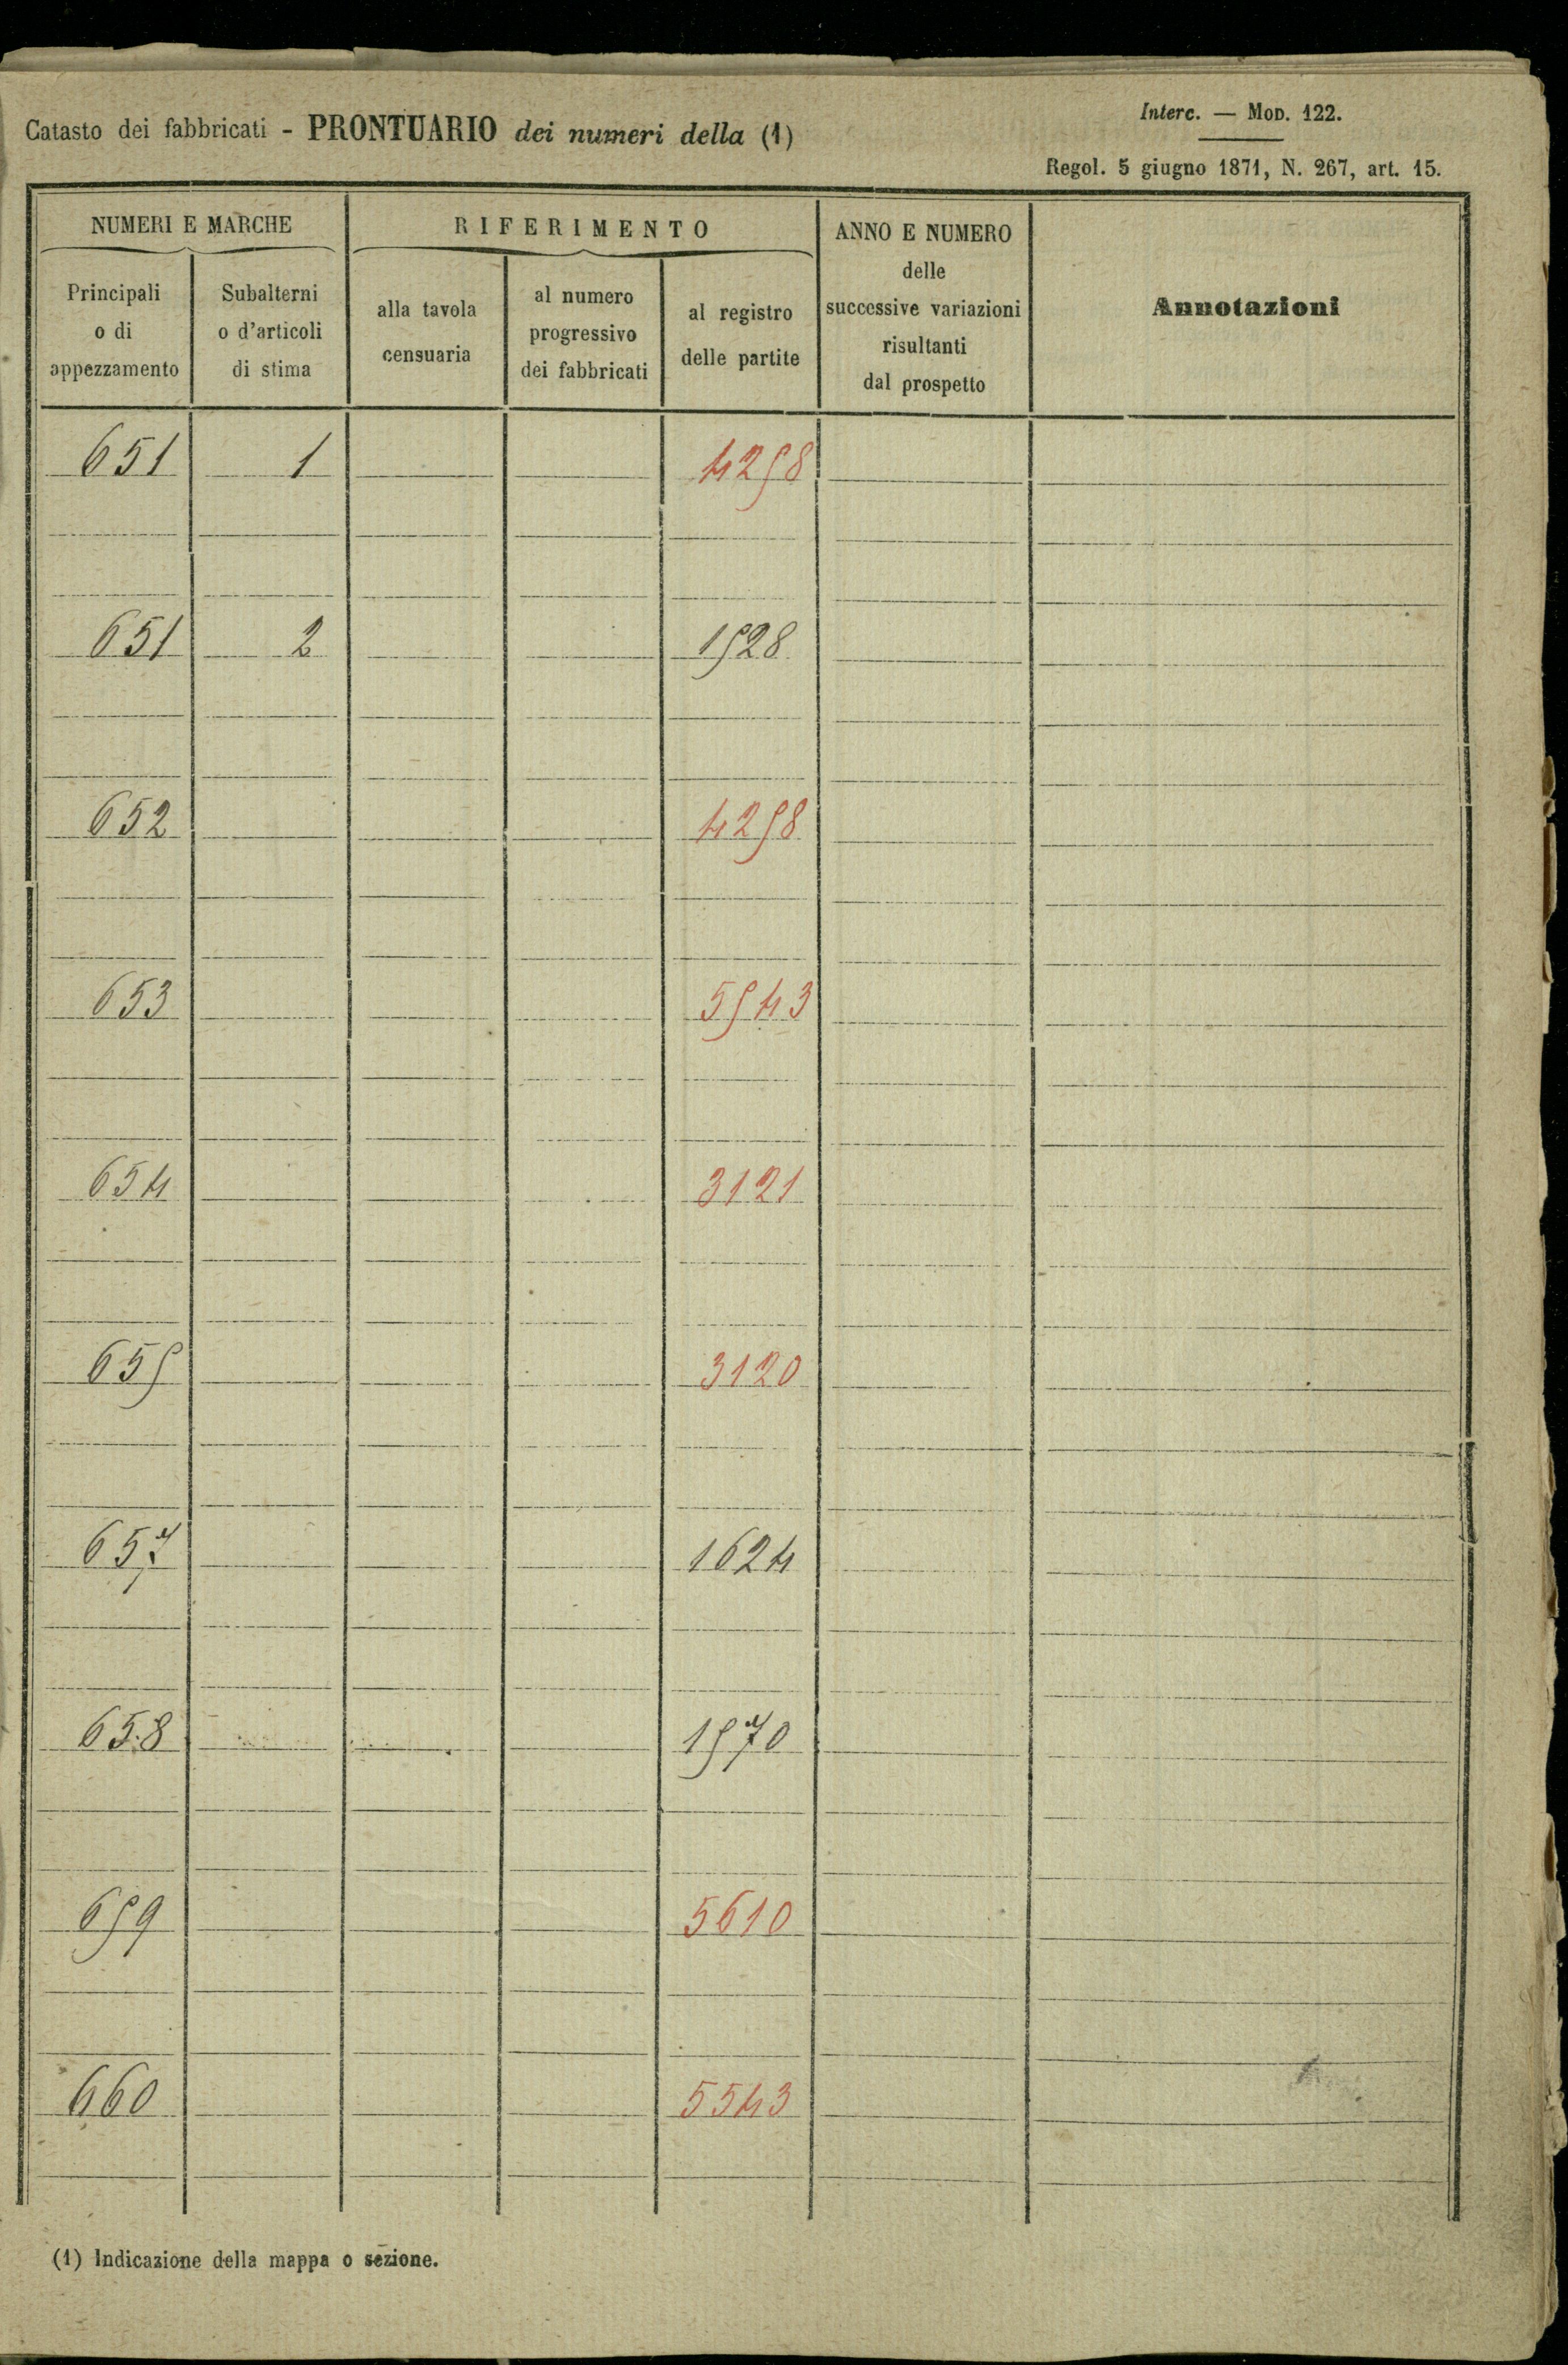 Catasto dei fabbricati - PRONTUARIO dei numeri della (1)
Interc. — Mod. 122.
Regol. 5 giugno 1871, N. 267, art. 15.
NUMERI E MARCHE
Principali
o di
appezzamento
Subalterni
o d'articoli
di stima
RIFERIMENTO
alla tavola
censuaria
al numero
progressivo
dei fabbricati
al registro
delle partite
ANNO E NUMERO
delle
successive variazioni
risultanti
dal prospetto
Annotazioni
651 1 4258
651 2 1528
652 4258
653 5543
654 3121
655 3120
657 1624
658 1570
659 5610
660 5543
(1) Indicazione della mappa o sezione.